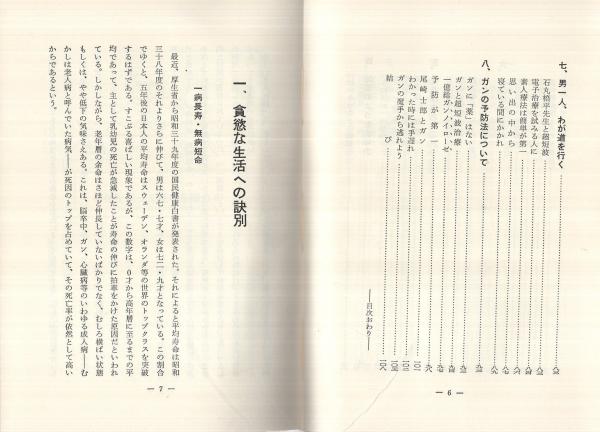 七、男一人、わが道を行く
石丸梧平先生と超短波
電子治療を試みる人に
素人療法は簡単が第一
思い出の中から
寝ている間にかかれ
八、ガンの予防法について
ガンに「薬」はない
ガンと超短波治療
一億総ガンノイローゼ
予防が第一
尾崎士郎とガン
わかった時には手遅れ
ガンの魔手から逃れよう
結び
――目次おわり――
― 6 ―
一、貪慾な生活への訣別
一病長寿・無病短命
最近、厚生省から昭和三十九年度の国民健康白書が発表された。それによると平均寿命は昭和
三十八年度のそれよりさらに伸びて、男は六七・七才、女は七二・九才となっている。この割合
でゆくと、五年後の日本人の平均寿命はスウェーデン、オランダ等の世界のトップクラスを突破
するはずである。すこぶる喜ばしい現象であるが、この数字は、０才から高年層に至るまでの平
均であって、主として乳幼児の死亡が急減したことが寿命の伸びに拍車をかけた原因だといわれ
ている。しかしながら、老年層の余命はさほど伸長していないばかりでなく、むしろ横ばい状態
もしくは、やや低下の気味さえある。これは、脳卒中、ガン、心臓病等のいわゆる成人病――む
かしは老人病と呼んでいた病気――が死因のトップを占めていて、その死亡率が依然として高い
からであるという。
― 7 ―